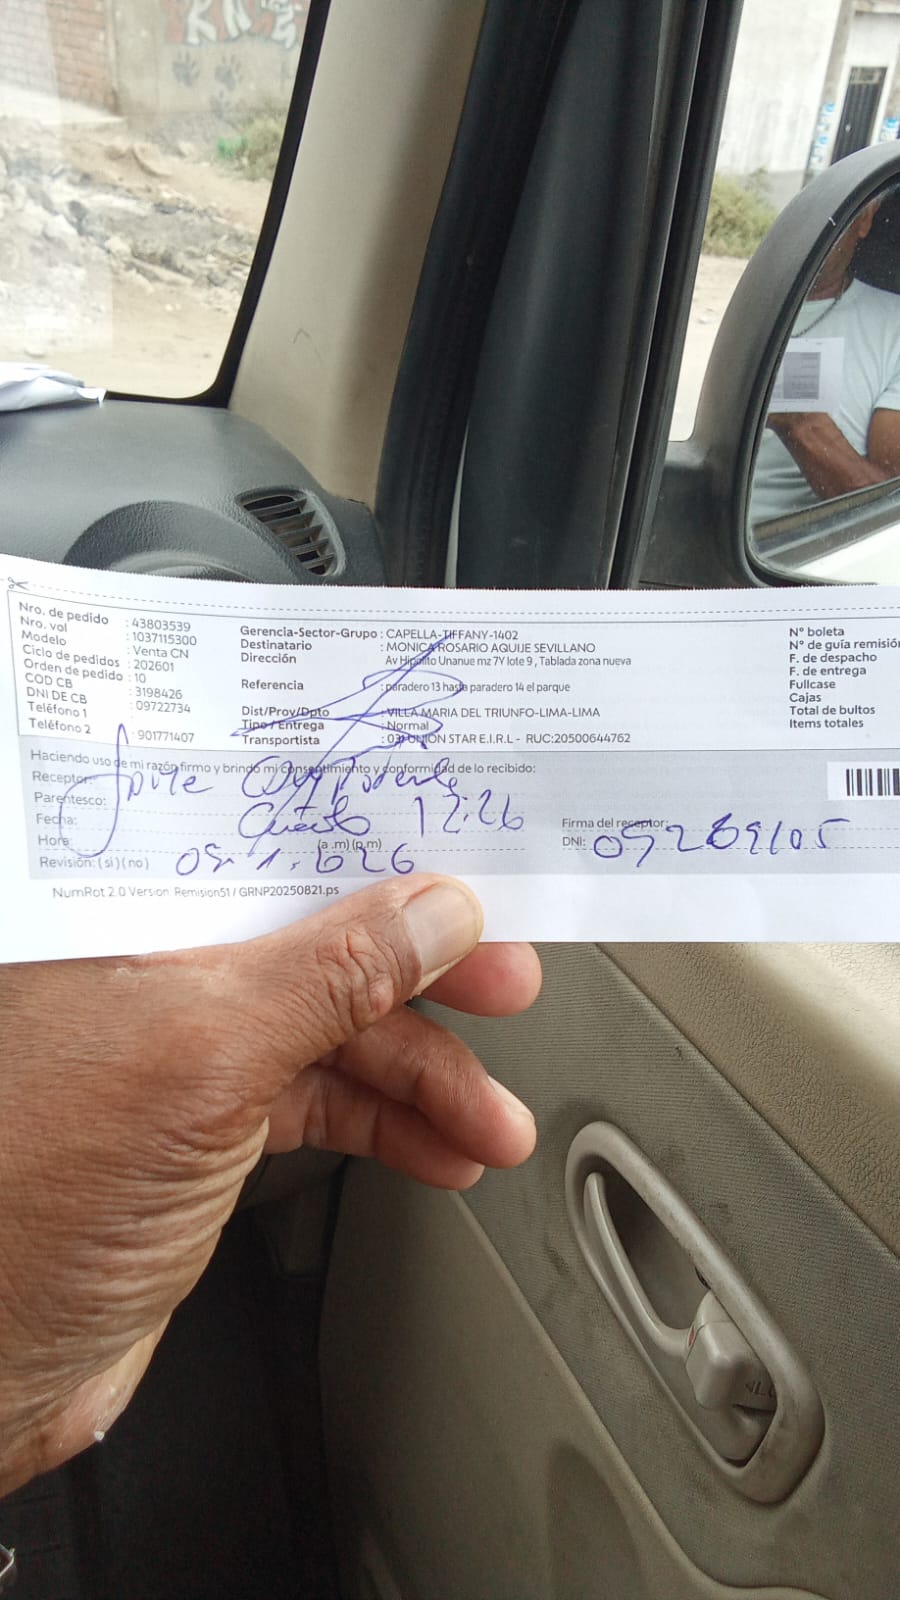 Nro. de pedido : 43803539
Nro. vol : 1037115300
Modelo : Venta CN
Ciclo de pedidos : 202601
Orden de pedido : 10
COD CB : 3198426
DNI DE CB : 09722734
Teléfono 1
Teléfono 2 : 901771407
Gerencia-Sector-Grupo : CAPELLA-TIFFANY-1402
Destinatario : MONICA ROSARIO AQUIJE SEVILLANO
Dirección Av Hipolito Unanue mz 7Y lote 9 , Tablada zona nueva
Referencia : paradero 13 hasta paradero 14 el parque
Dist/Prov/Dpto : VILLA MARIA DEL TRIUNFO-LIMA-LIMA
Tipo / Entrega : Normal
Transportista : 03 UNION STAR E.I.R.L - RUC:20500644762
N° boleta
N° de guía remisión
F. de despacho
F. de entrega
Fullcase
Cajas
Total de bultos
Items totales
Haciendo uso de mi razón firmo y brindo mi consentimiento y conformidad de lo recibido:
Receptor:
Parentesco:
Fecha: 12:26
Hora: (a .m) (p.m)
Revisión: ( si ) ( no )
Firma del receptor:
DNI: 09269105
NumRot 2.0 Version Remision51 / GRNP20250821.ps